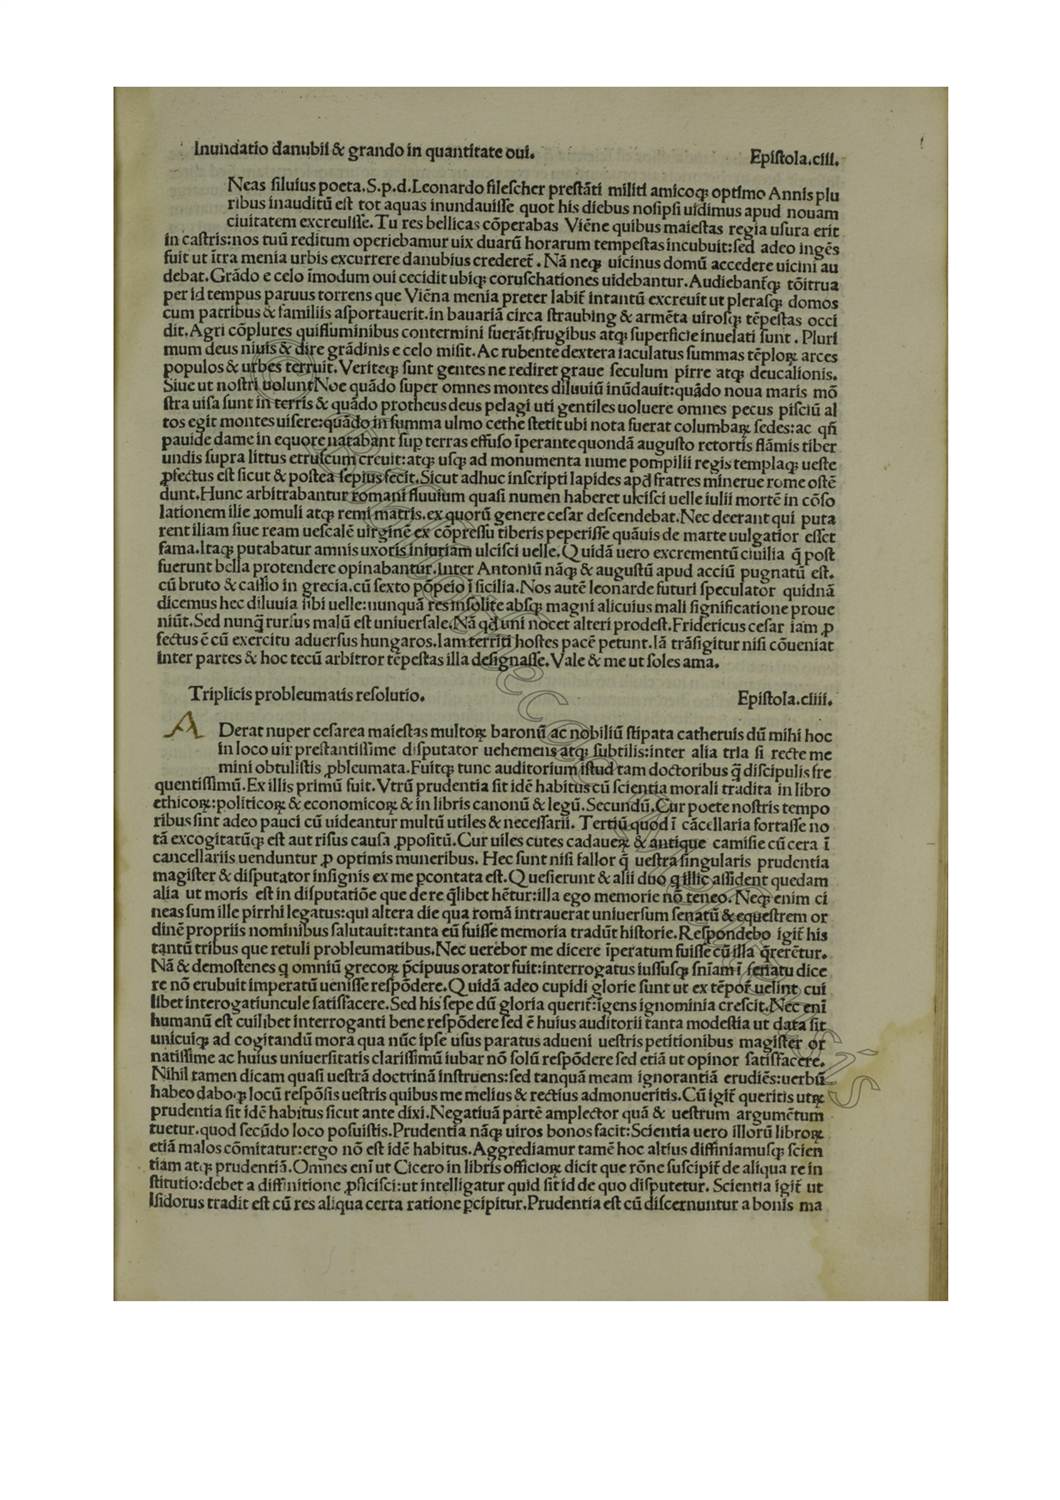 Inundatio danubii & grando in quantitate oui. Epistola.ciii.
Neas siluius poeta.S.p.d.Leonardo filescher prestāti militi amicoqꝫ optimo Annis plu
ribus inauditū est tot aquas inundauisse quot his diebus nosipsi uidimus apud nouam
ciuitatem excreuisse.Tu res bellicas cōperabas Viēne quibus maiestas regia usura erit
in castris:nos tuū reditum operiebamur uix duarū horarum tempestas incubuit:sed adeo ingēs
fuit ut ītra menia urbis excurrere danubius crederet̄. Nā neqꝫ uicinus domū accedere uicini au
debat.Grādo e celo īmodum oui cecidit ubiqꝫ coruschationes uidebantur.Audiebant̄qꝫ tōitrua
per id tempus paruus torrens que Viēna menia preter labit̄ intantū excreuit ut plerasqꝫ domos
cum patribus & familiis asportauerit.in bauariā circa straubing & armēta uirosqꝫ tēpestas occi
dit.Agri cōplures quifluminibus contermini fuerāt,frugibus atqꝫ superficie inuelati sunt. Pluri
mum deus niuis & dire grādinis e celo misit.Ac rubente dextera iaculatus summas tēploꝝ arces
populos & urbes terruit.Veriteqꝫ sunt gentes ne rediret graue seculum pirre atqꝫ deucalionis.
Siue ut nostri uolunt Noe quādo super omnes montes diluuiū inūdauit:quādo noua maris mō
stra uisa sunt in terris & quādo protheus deus pelagi uti gentiles uoluere omnes pecus pisciū al
tos egit montes uisere:quādo in summa ulmo cethe stetit ubi nota fuerat columbaꝝ sedes:ac qn̄
pauide dame in equore natabant sup terras effuso īperante quondā augusto retortis flāmis tiber
undis supra littus etruscum creuit:atqꝫ usqꝫ ad monumenta nume pompilii regis templaqꝫ ueste
ꝓfectus est sicut & postea sepius fecit.Sicut adhuc inscripti lapides apd̄ fratres minerue rome ostē
dunt.Hunc arbitrabantur romani fluuium quasi numen haberet ulcisci uelle iulii mortē in cōso
lationem ilie romuli atqꝫ remi matris.ex quorū genere cesar descendebat.Nec deerant qui puta
rent iliam siue ream uescalē uirginē ex cōpressu tiberis peperisse quāuis de marte uulgatior esset
fama.Itaqꝫ putabatur amnis uxoris iniuriam ulcisci uelle.Quidā uero excrementū ciuilia q̄ post
fuerunt bella protendere opinabantur.Inter Antoniū nāqꝫ & augustū apud acciū pugnatū est.
cū bruto & cassio in grecia.cū sexto pōpeio ī sicilia.Nos autē leonarde futuri speculator quidnā
dicemus hec diluuia sibi uelle:nunquā res insolite absqꝫ magni alicuius mali significatione proue
niūt.Sed nunq̄ rursus malū est uniuersale.Nā qd̄ uni nocet alteri prodest.Fridericus cesar iam ꝓ
fectus ē cū exercitu aduersus hungaros.Iam territi hostes pacē petunt.Iā trāsigitur nisi cōueniat
inter partes & hoc tecū arbitror tēpestas illa designasse.Vale & me ut soles ama.
Triplicis probleumatis resolutio. Epistola.ciiii.
A Derat nuper cesarea maiestas multoꝝ baronū ac nobiliū stipata catheruis dū mihi hoc
in loco uir prestantissime disputator uehemens atqꝫ subtilis:inter alia tria si recte me
mini obtulistis ꝓbleumata.Fuitqꝫ tunc auditorium istud tam doctoribus q̄ discipulis fre
quentissimū.Ex illis primū fuit.Vtrū prudentia sit idē habitus cū scientia morali tradita in libro
ethicoꝝ:politicoꝝ & economicoꝝ & in libris canonū & legū.Secundū.Cur poete nostris tempo
ribus sint adeo pauci cū uideantur multū utiles & necessarii. Tertiū quod ī cācellaria fortasse no
tā excogitatūqꝫ est aut risus causa ꝓpositū.Cur uiles cutes cadaueꝝ & antique camisie cū cera ī
cancellariis uenduntur ꝓ optimis muneribus. Hec sunt nisi fallor q̄ uestra singularis prudentia
magister & disputator insignis ex me ꝑcontata est.Quesierunt & alii duo q illic assident quedam
alia ut moris est in disputatiōe que de re q̄libet hētur:illa ego memorie nō teneo.Neqꝫ enim ci
neas sum ille pirrhi legatus:qui altera die qua romā intrauerat uniuersum senatū & equestrem or
dinē propriis nominibus salutauit:tanta eū fuisse memoria tradūt historie.Respondebo igit̄ his
tantū tribus que retuli probleumatibus.Nec uerebor me dicere īperatum fuisse cū illa q̄rerētur.
Nā & demostenes q omniū grecoꝝ p̄cipuus orator fuit:interrogatus iussusqꝫ sn̄iam ī senatu dice
re nō erubuit imperatū uenisse respōdere.Quidā adeo cupidi glorie sunt ut ex tēpor̄ uelint cui
libet interogatiuncule satisfacere.Sed his sepe dū gloria querit̄:īgens ignominia crescit.Nec eni
humanū est cuilibet interroganti bene respōdere sed ē huius auditorii tanta modestia ut data sit
unicuiqꝫ ad cogitandū mora qua nūc ipse usus paratus adueni uestris petitionibus magister or
natissime ac huius uniuersitatis clarissimū iubar nō solū respōdere sed etiā ut opinor satisfacere.
Nihil tamen dicam quasi uestrā doctrinā instruens:sed tanquā meam ignorantiā erudiēs:uerbū
habeo daboqꝫ locū respōsis uestris quibus me melius & rectius admoueritis.Cū igit̄ queritis utꝝ
prudentia sit idē habitus sicut ante dixi.Negatiuā partē amplector quā & uestrum argumētum
tuetur.quod secūdo loco posuistis.Prudentia nāqꝫ uiros bonos facit:Scientia uero illorū libroꝝ
etiā malos cōmitatur:ergo nō est idē habitus.Aggrediamur tamē hoc altius diffiniamusqꝫ scien
tiam atqꝫ prudentiā.Omnes eni ut Cicero in libris officioꝝ dicit que rōne suscipit̄ de aliqua re in
stitutio:debet a diffinitione ꝓficisci:ut intelligatur quid sit id de quo disputetur. Scientia igit̄ ut
Isidorus tradit est cū res aliqua certa ratione ꝑcipitur.Prudentia est cū discernuntur a bonis ma